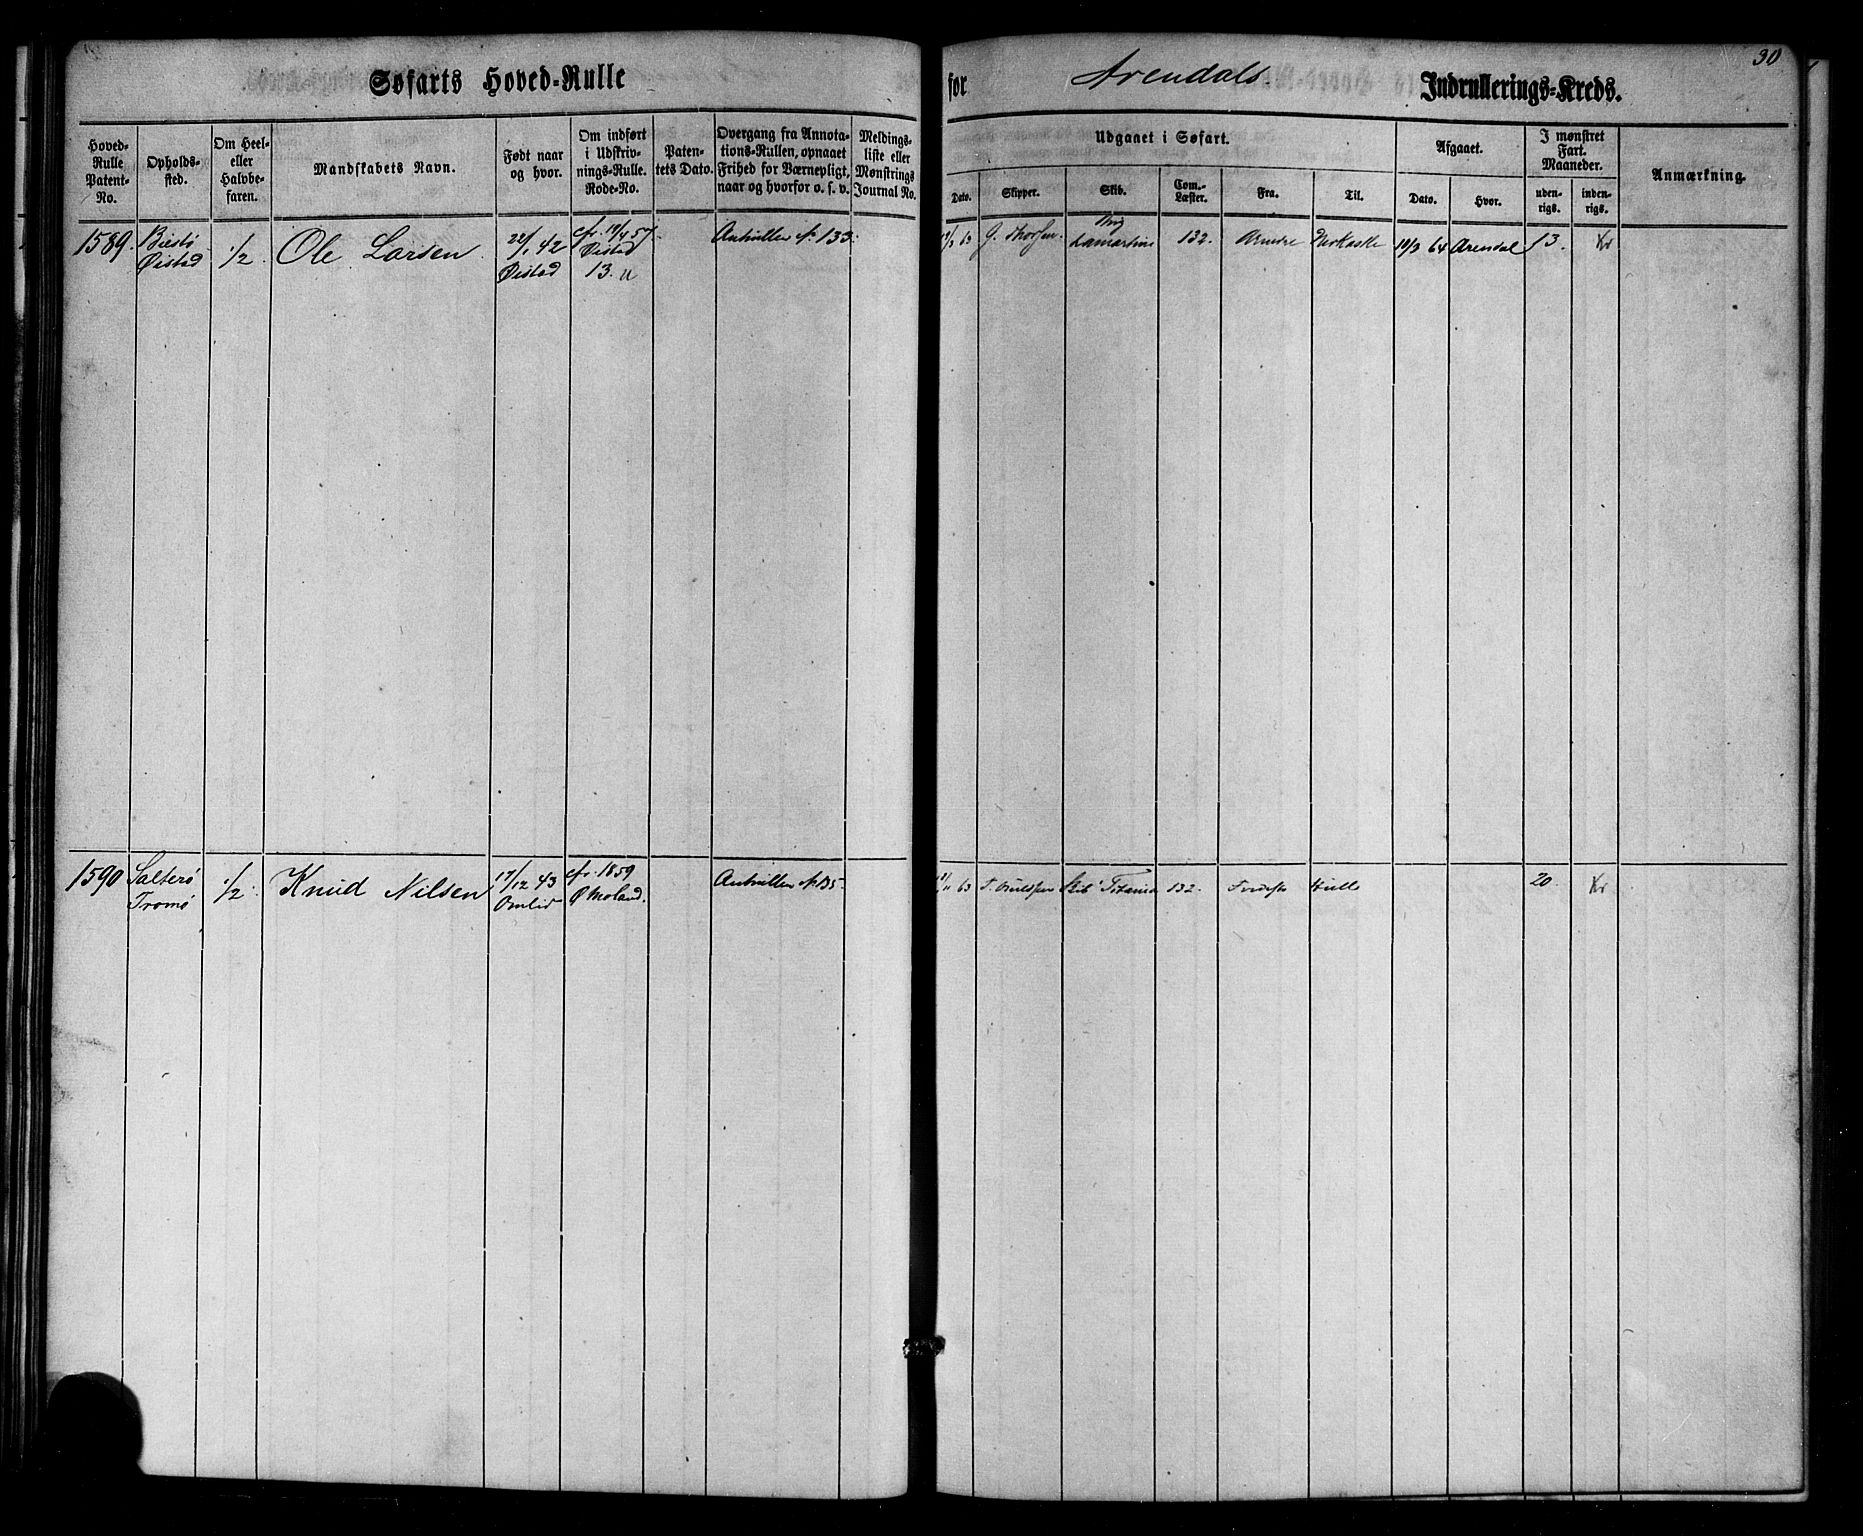 30
Søfarts Hoved-Rulle for Arendals Indrullerings-Kreds.
Hoved-Rulle Patent-No.
Opholds-sted.
Om Heel- eller Halvbe-faren.
Mandskabets Navn.
Født naar og hvor.
Om indført i Udskriv-nings-Rulle. Rode-No.
Paten-tets Dato.
Overgang fra Annota-tions-Rullen, opnaaet Frihed for Værnepligt, naar og hvorfor o. s. v.
Meldings-liste eller Mønstrings Journal No.
Udgaaet i Søfart.
Dato.
Skipper.
Skib.
Com.-Læster.
Fra.
Til.
Afgaaet.
Dato.
Hvor.
I mønstret Fart. Maaneder.
uden-rigs.
inden-rigs.
Anmærkning.
1589
Biestø
Øistad
1/2
Ole Larsen
22/1 42
Øistad
cfr. 14/4 57
Øistad
13. u
Antrullen No. 133.
63
G. Thorsen
Brig
Lamartine
132.
64
Arendal
13.
1590
Salterø
Tromø
1/2
Knud Nilsen
17/12 43
Omlid
cfr. 1859
Ø Moland.
Antrullen No. 135.
63
Skib Titania
132.
Hull
20